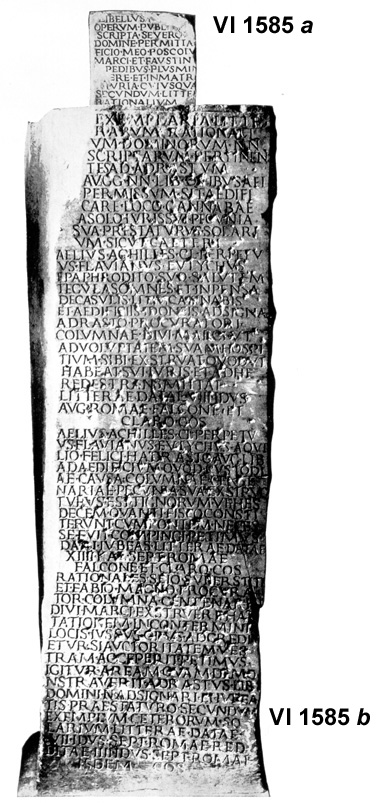 VI 1585 a
LIBELLVS
OPERVM PVBL
SCRIPTA SEVERO
DOMINE PERMITTA
FICIO MEO POSCO IV
MARCI ET FAVSTIN
PEDIBVS PLVS MIN
ERE ET IN MATRI
IVRIA CVIVS QVA
SECVNDVM LITTE
RATIONALIVM
EXEMPLARIA LITTE
RARVM RATIONALI
VM DOMINORVM NN
SCRIPTARVM PERTINEN
TES AD ADRASTVM
AVGG NN LIB QVIBVS AEI
PERMISSVM SIT AEDIFI
CARE LOCO CANNABAE
A SOLO IVRIS SVI PECVNIA
SVA PRESTATVRVS SOLARI
VM SICVT CAETERI
AELIVS ACHILLES CL PERPETV
VS FLAVIANVS EVTYCHVS
EPAPHRODITO SVO SALVTEM
TEGVLAS OMNES ET INPENSA
DE CASVLIS ITEM CANNABIS
ET AEDIFICIIS IDONEIS ADSIGNA
ADRASTO PROCVRATORI
COLVMNAE DIVI MARCI VT
AD VOLVPTATEM SVAM HOSPI
TIVM SIBI EXSTRVAT QVOD VT
HABEAT SVI IVRIS ET AD HE
REDES TRANSMITTAT
LITTERAE DATAE VIII IDVS
AVG ROMAE FALCONE ET
CLARO COS
AELIVS ACHILLES CL PERPETV
VS FLAVIANVS EVTYCHVS AQVI
LIO FELICI HADRASTO AVG LIB
AD AEDIFICIVM QVOD CVSTODI
AE CAVSA COLVMNAE CENTE
NARIAE PECVNIA SVA EXSTRVC
TVRVS EST TIGNORVM VEHES
DECEM QVANTI FISCO CONSTI
TERVNT CVM PONTEM NECES
SE FVIT COMPINGI PETIMVS
DARI IVBEAS LITTERAE DATAE
XIIII KAL SEPT ROMAE
FALCONE ET CLARO COS
RATIONALES SEIO SVPERSTITI
ET FABIO MAGNO PROCVRA
TOR COLVMNAE CENTENARIAE
DIVI MARCI EXSTRVERE HABI
TATIONEM IN CONTERMINIS
LOCIS IVSSVS OPVS ADGREDI
ETVR SI AVCTORITATEM VES
TRAM ACCEPERIT PETIMVS
IGITVR AREAM QVAM DEMO
NSTRAVERIT ADRASTVS LIB
DOMINI N ADSIGNARI EI IVBEA
TIS PRAESTATVRO SECVNDVM
VI 1585 b
EXEMPLVM CETERORVM SO
LARIVM LITTERAE DATAE
VII IDVS SEPT ROMAE RED
DITAE IIII IDVS SEPT ROMAE
ISDEM COS